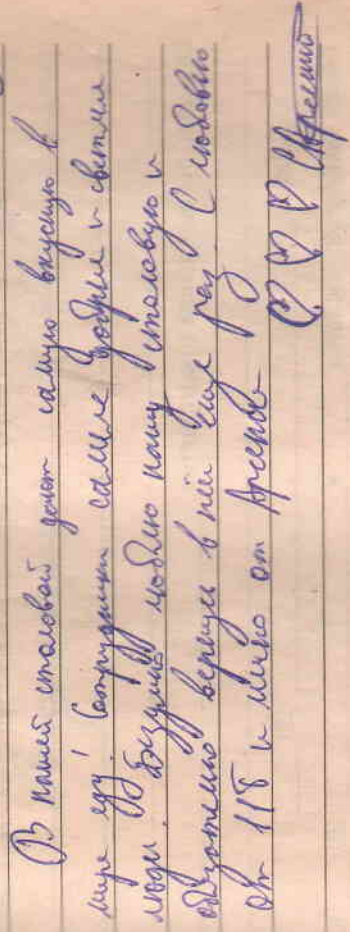 В нашей столовой делают самую вкусную в
мире еду! Сотрудники самые добрые и светлые
люди. Безумно люблю нашу столовую и
обязательно вернусь в неё ещё раз. С любовью
от 11Б и лично от Арсения